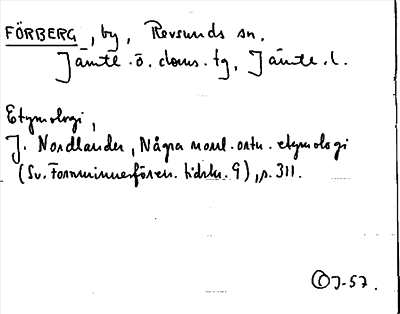 FÖRBERG, by, Revsunds sn.
Jämtl. ö. doms. tg, Jämtl. l.
Etymologi,
J. Nordlander, Några norrl. ortn. etymologi
(Sv. Fornminnesfören. tidskr. 9), s. 311.
J-57.